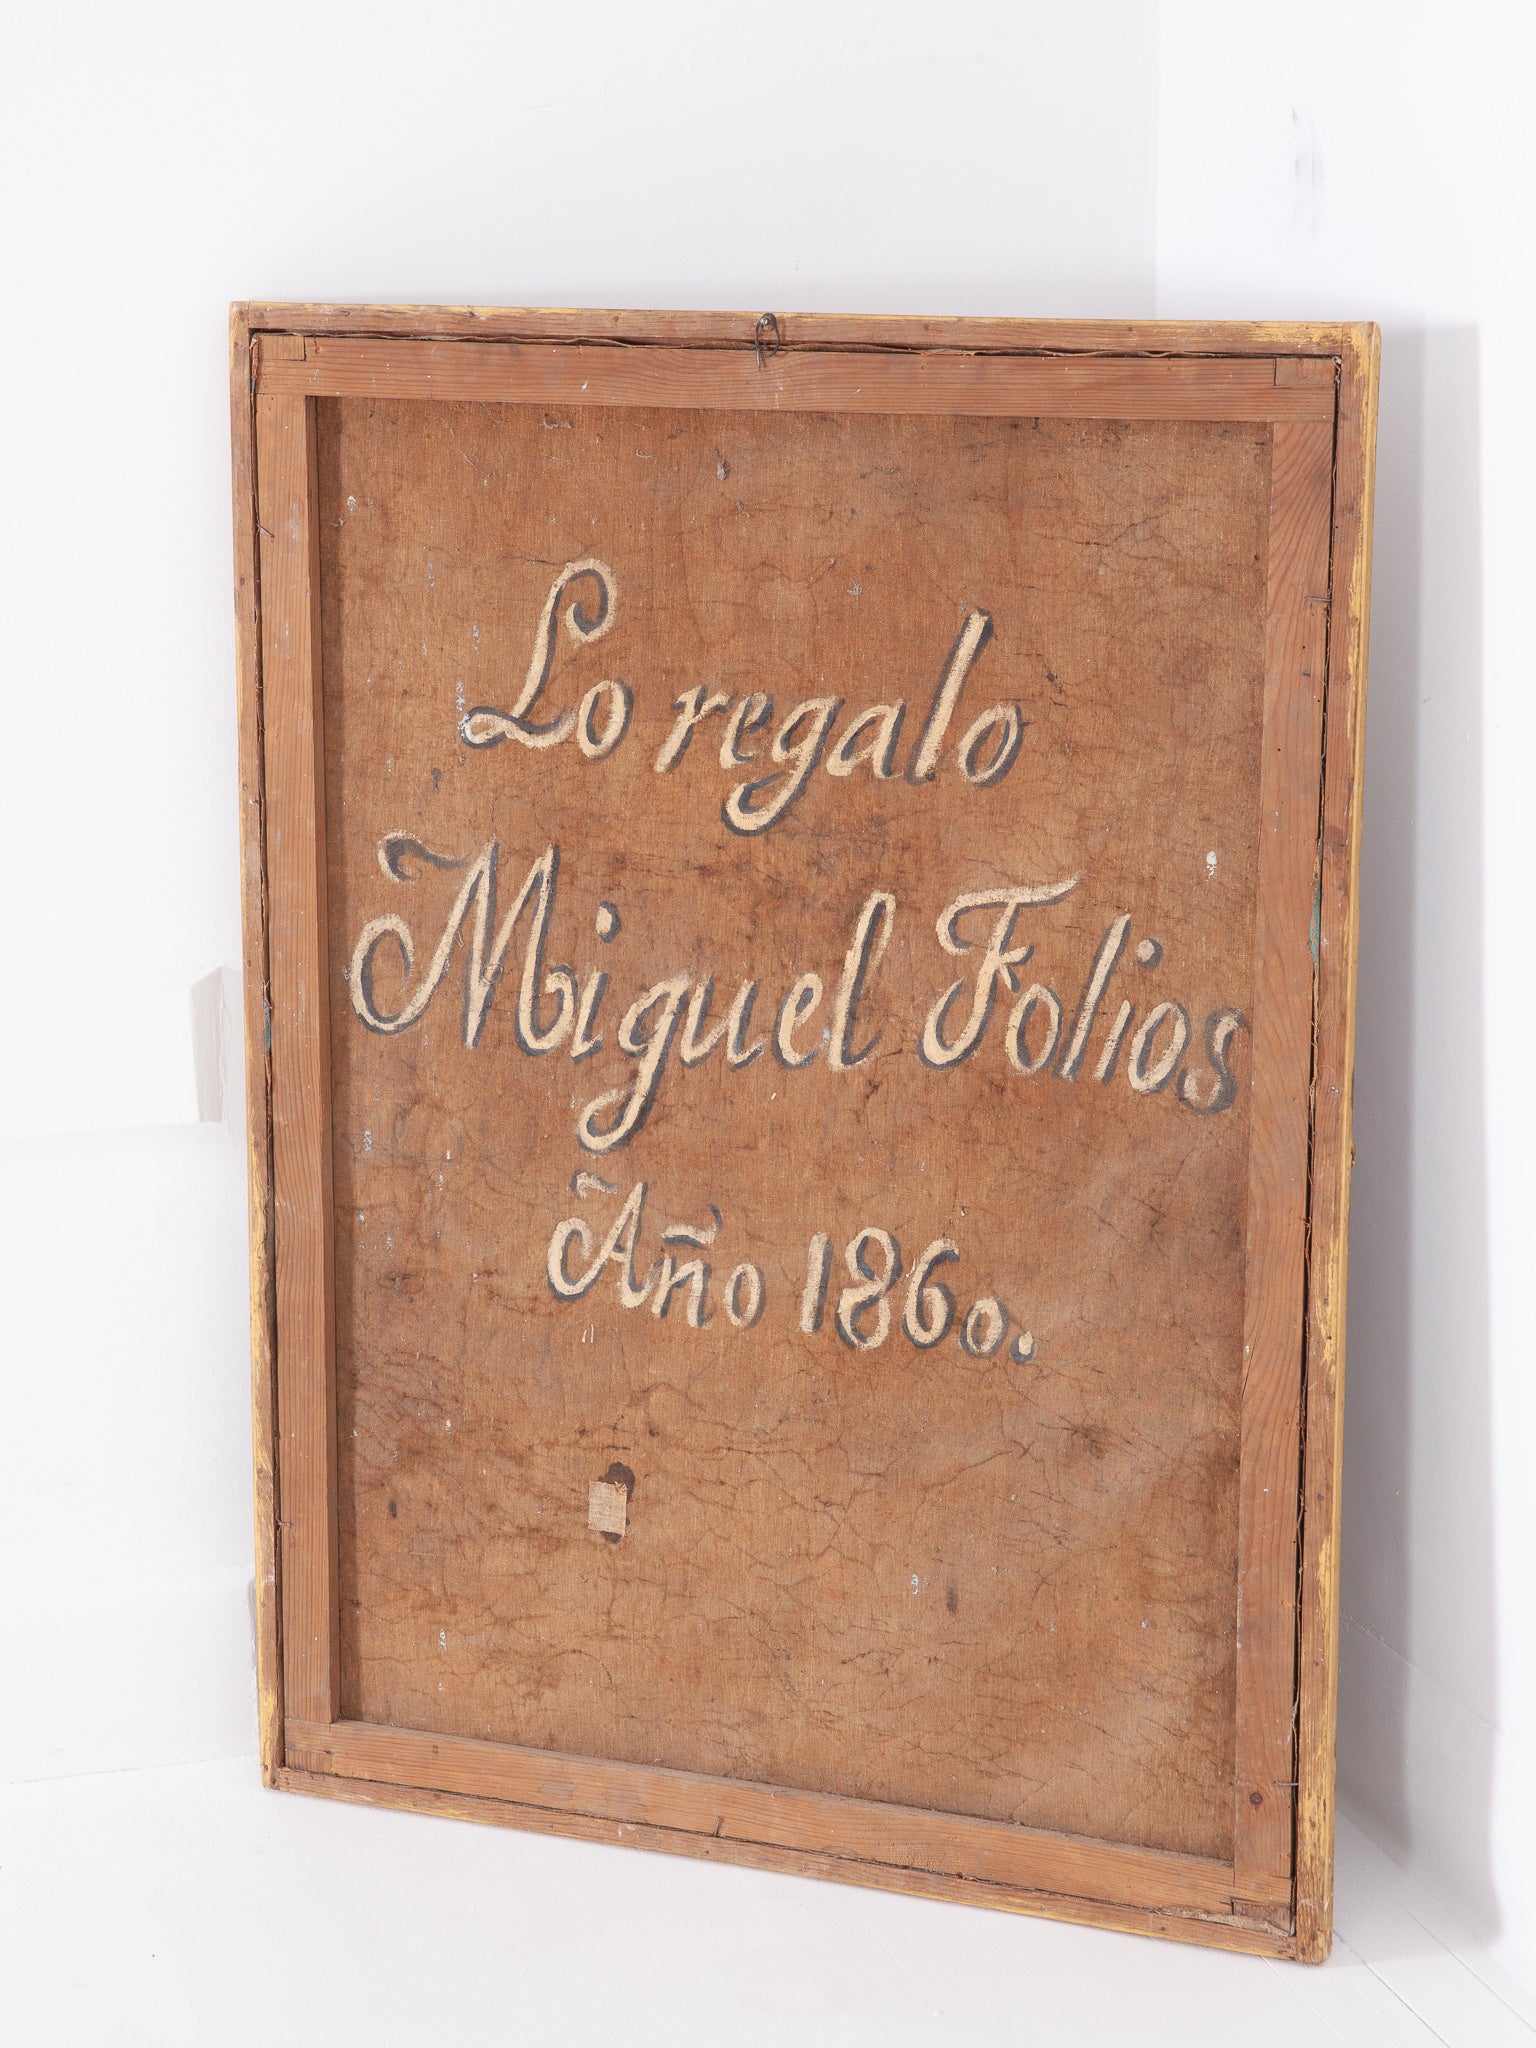 Lo regalo
Miguel Folios
Año 1860.